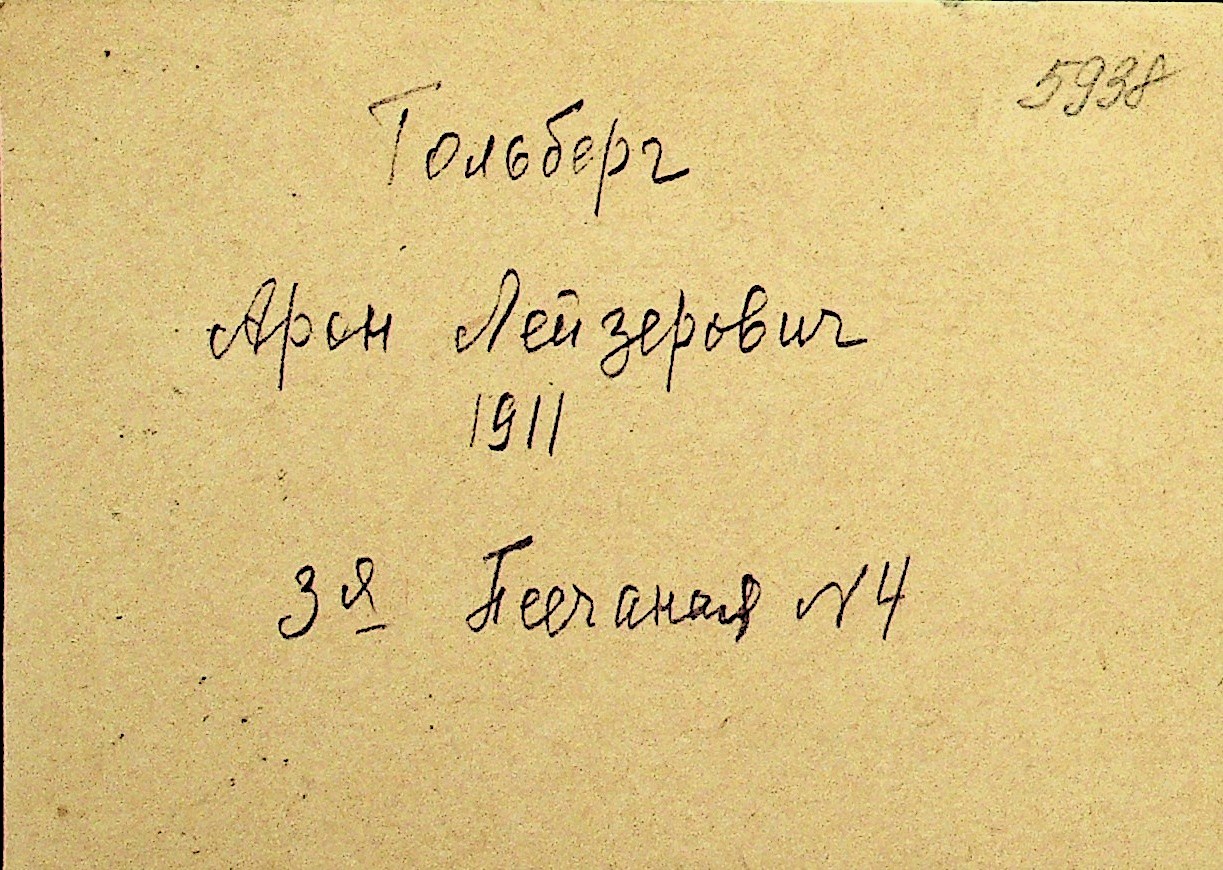 5938
Гольберг
Арон Лейзерович
1911
3я Песчаная N4